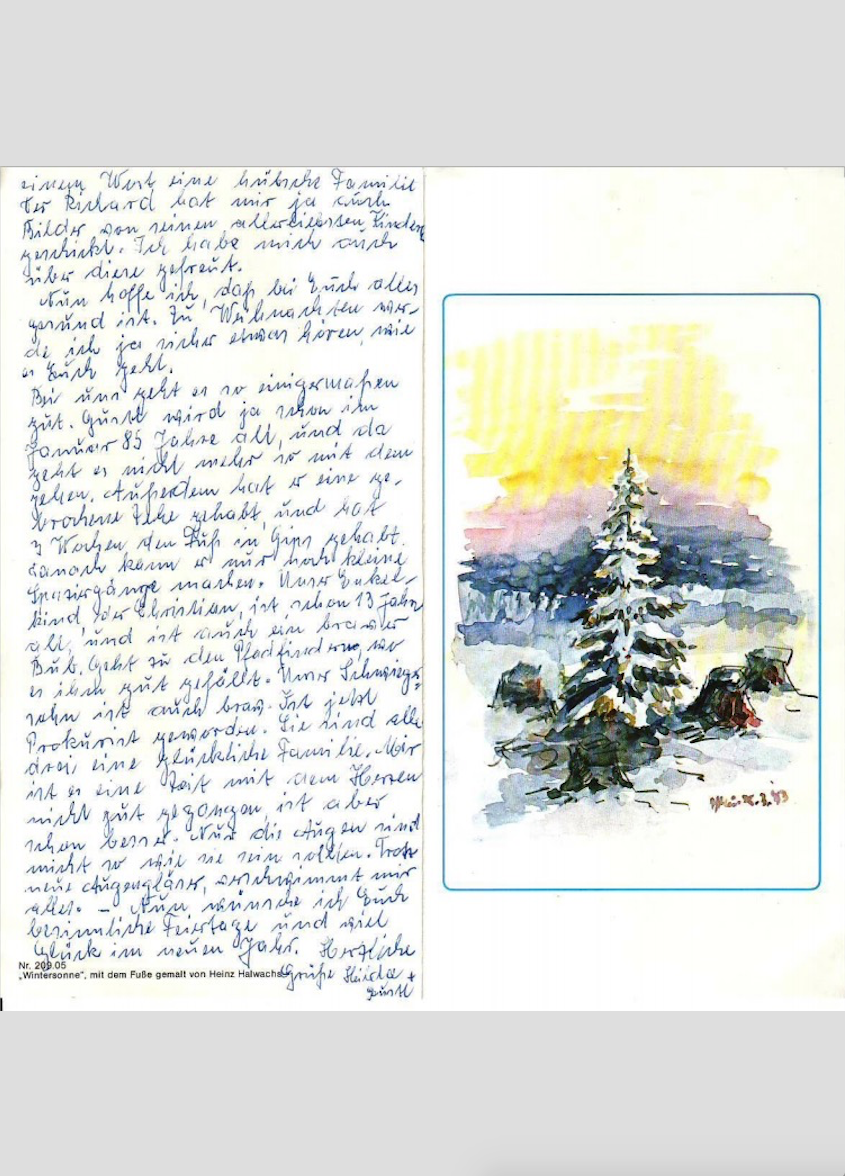 einem Wort eine hübsche Familie
Der Richard hat mir ja auch
Bilder von seinen allerliebsten Kindern
geschickt. Ich habe mich auch
über diese gefreut.
Nun hoffe ich, daß bei Euch alles
gesund ist. Zu Weihnachten wer-
de ich ja sicher etwas hören, wie
es Euch geht.
Bei uns geht es so einigermaßen
gut. Gustl wird ja schon im
Januar 85 Jahre alt, und da
geht es nicht mehr so mit dem
gehen. Außerdem hat er eine ge-
brochene Zehe gehabt, und hat
3 Wochen den Fuß in Gips gehabt.
danach kann er nur noch kleine
Spaziergänge machen. Unser Enkel-
kind, der Christian, ist schon 13 Jahre
alt, und ist auch ein braver
Bub. Geht zu den Pfadfindern, wo
es ihm gut gefällt. Unser Schwieger-
sohn ist auch brav. Ist jetzt
Prokurist geworden. Sie sind alle
drei eine glückliche Familie. Mir
ist es eine Zeit mit dem Herzen
nicht gut gegangen, ist aber
schon besser. Nur die Augen sind
nicht so wie sie sein sollten. Trotz
neue Augengläser, verschwimmt mir
alles. – Nun wünsche ich Euch
besinnliche Feiertage und viel
Glück im neuen Jahr. Herzliche
Grüße Hilda +
Gustl
Nr. 209.05
„Wintersonne", mit dem Fuße gemalt von Heinz Halwachs